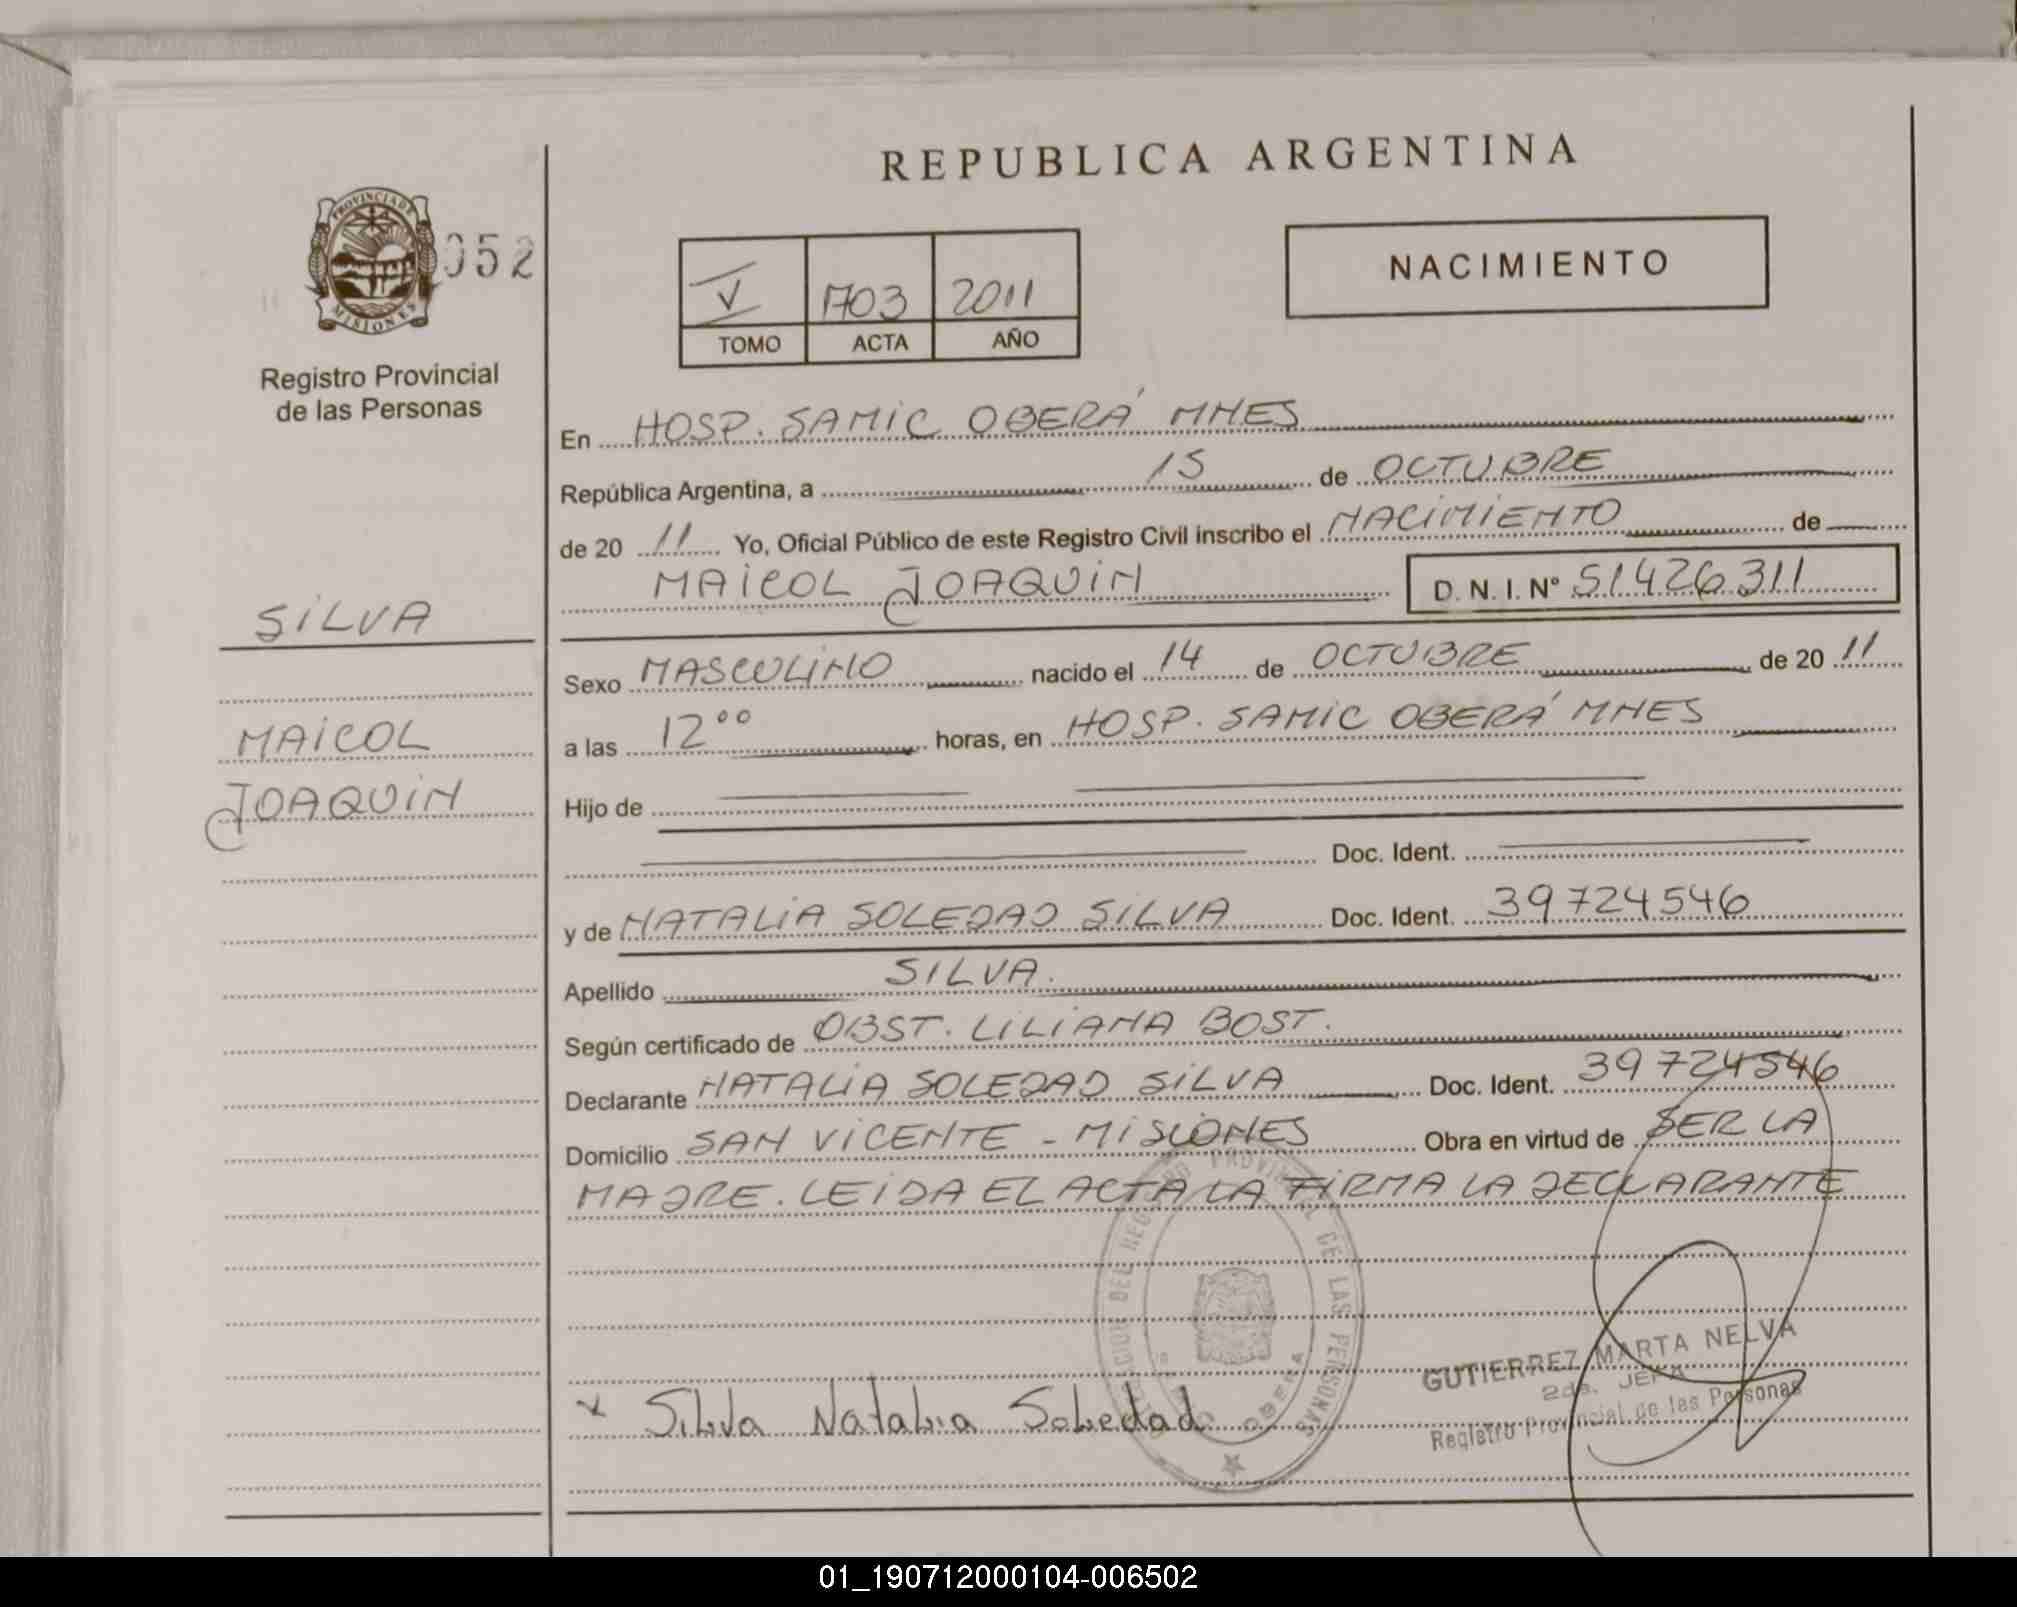 REPUBLICA ARGENTINA
PROVINCIA DE
MISIONES
052
Registro Provincial
de las Personas
V 1703 2011
TOMO ACTA AÑO
NACIMIENTO
En HOSP. SAMIC OBERÁ MNES
República Argentina, a 15 de OCTUBRE
de 20 11 Yo, Oficial Público de este Registro Civil inscribo el NACIMIENTO de
MAICOL JOAQUIN D. N. I. Nº 51426311
SILVA
MAICOL
JOAQUIN
Sexo MASCULINO nacido el 14 de OCTUBRE de 20 11
a las 12⁰⁰ horas, en HOSP. SAMIC OBERÁ MNES
Hijo de
Doc. Ident.
y de NATALIA SOLEDAD SILVA Doc. Ident. 39724546
Apellido SILVA.
Según certificado de OBST. LILIANA BOST.
Declarante NATALIA SOLEDAD SILVA Doc. Ident. 39724546
Domicilio SAN VICENTE - MISIONES Obra en virtud de SER LA
MADRE. LEIDA EL ACTA LA FIRMA LA DECLARANTE
DEL REGISTRO PROVINCIAL DE LAS PERSONAS
OBERA
x Silva Natalia Soledad
GUTIERREZ MARTA NELVA
2da. JEFA
Registro Provincial de las Personas
01_190712000104-006502